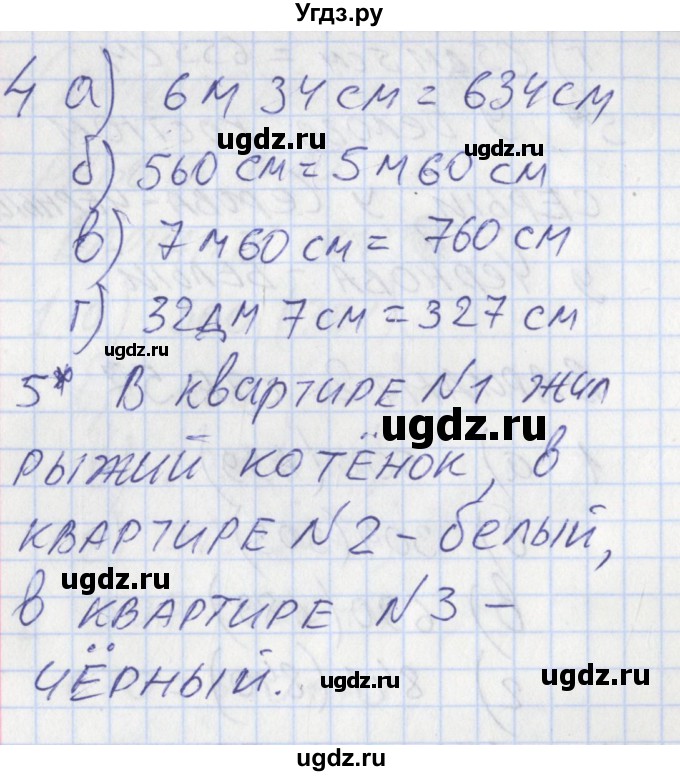 Угдз.ру
4 а) 6 м 34 см = 634 см
ugdz.ru ugdz.ru
б) 560 см = 5 м 60 см
в) 7 м 60 см = 760 см
г) 32 дм 7 см = 327 см
ugdz.ru ugdz.ru
5* В квартире №1 жил
ugdz.ru
рыжий котёнок, в
квартире №2 - белый,
ugdz.ru ugdz.ru
в квартире №3 -
чёрный.
ugdz.ru ugdz.ru
ugdz.ru